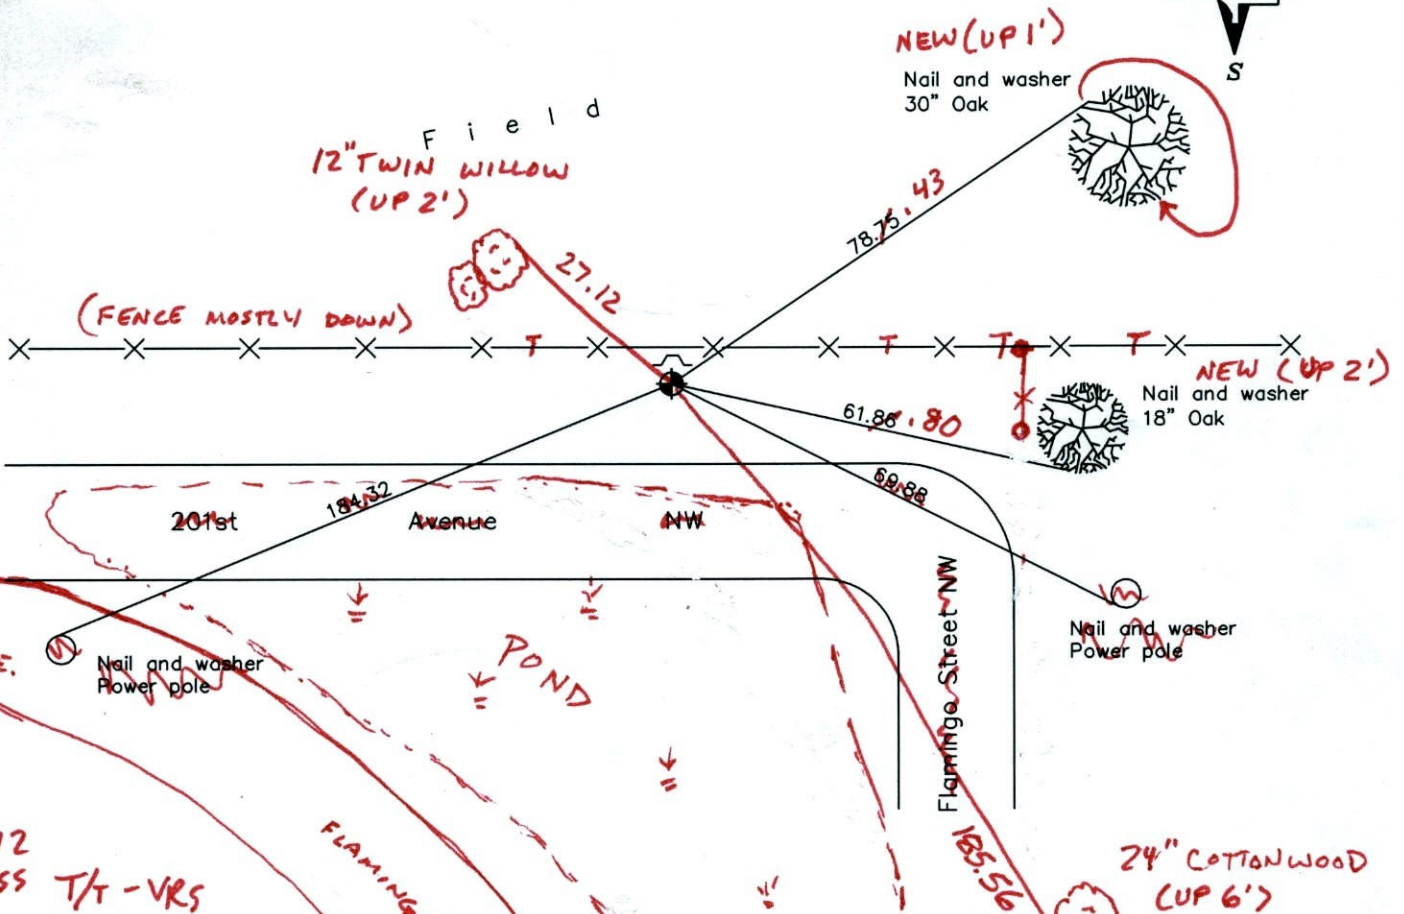 NEW (UP 1')
Nail and washer
30" Oak
S
Field
12" TWIN WILLOW
(UP 2')
78.75 .43
27.12
(FENCE MOSTLY DOWN)
T T T T
NEW (UP 2')
Nail and washer
18" Oak
61.86 .80
69.88
184.32
201st Avenue NW
Flamingo Street NW
POND
Nail and washer
Power pole
Nail and washer
Power pole
E.
185.56
24" COTTONWOOD
(UP 6')
12
SS T/T - VRS
FLAMING